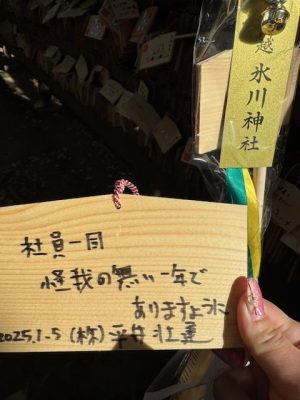 越
氷川神社
社員一同
怪我の無い一年で
ありますよう氷
2025.1.5 (株)平井